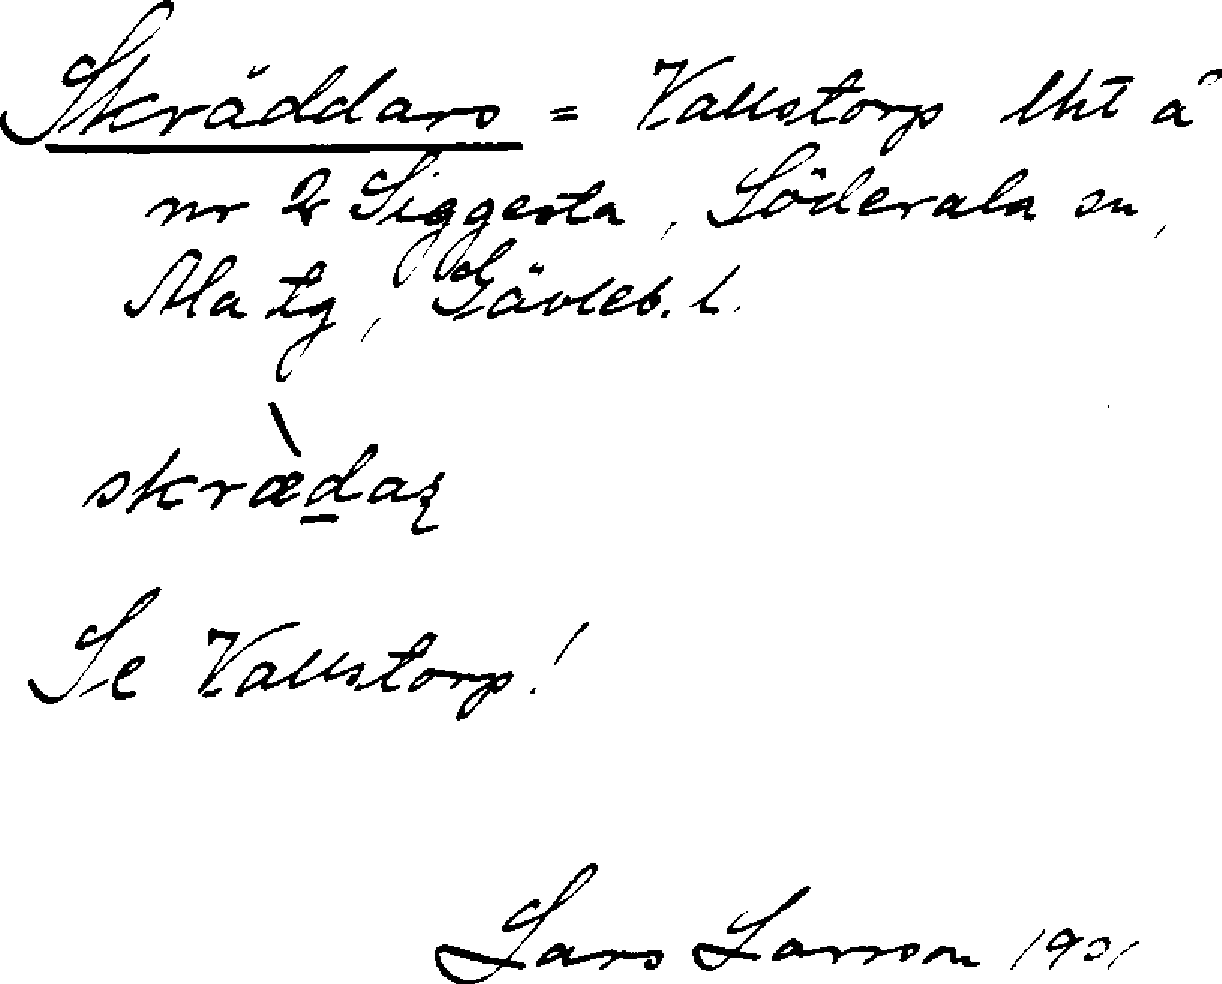 Skräddars = Vallstorp lht å
nr 2 Siggesta, Söderala sn,
Ala tg, Gävleb. l.
skrædaʂ
Se Vallstorp!
Lars Larsson